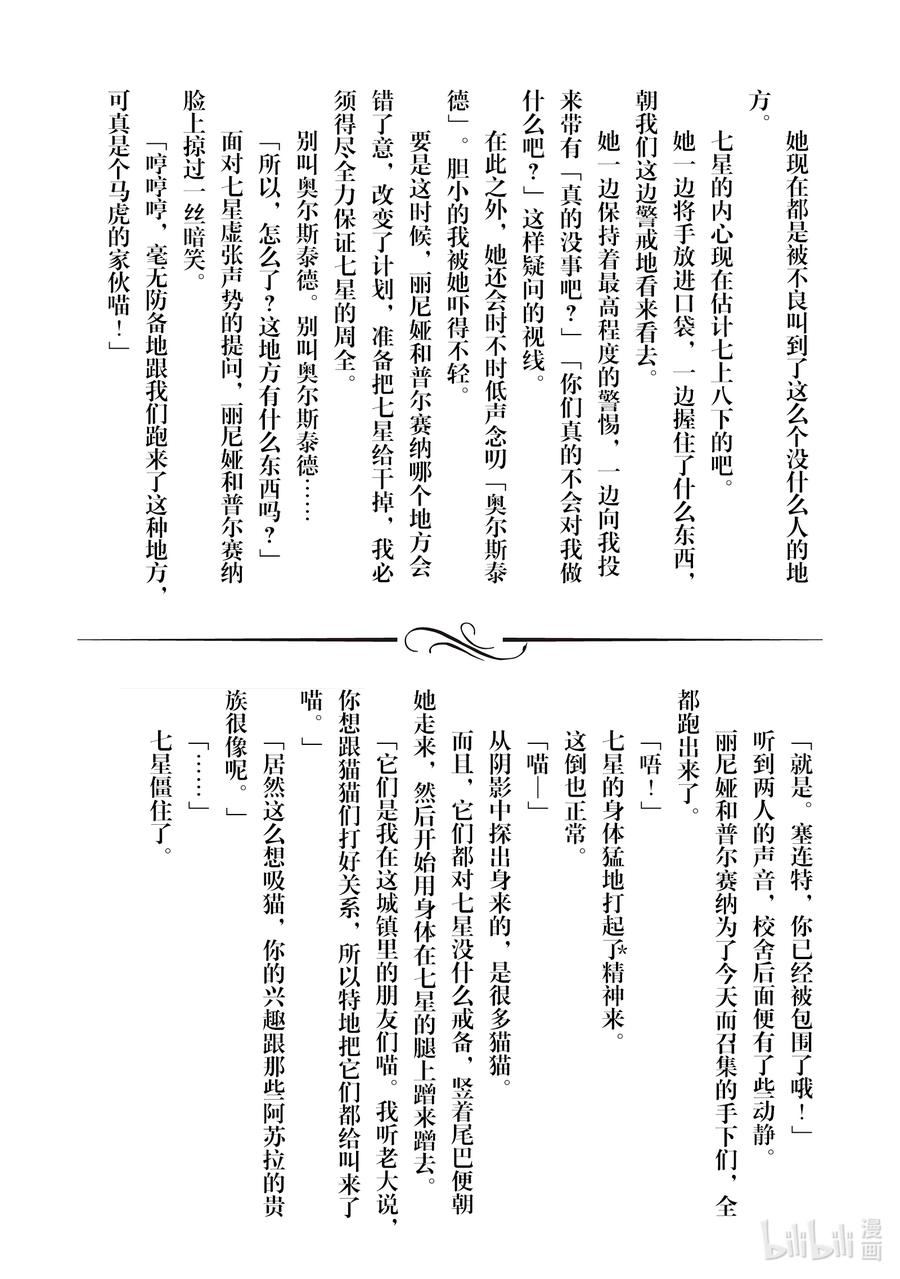 她现在都是被不良叫到了这么个没什么人的地
方。
七星的内心现在估计七上八下的吧。
她一边将手放进口袋，一边握住了什么东西，
朝我们这边警戒地看来看去。
她一边保持着最高程度的警惕，一边向我投
来带有「真的没事吧？」「你们真的不会对我做
什么吧？」这样疑问的视线。
在此之外，她还会时不时低声念叨「奥尔斯泰
德」。胆小的我被她吓得不轻。
要是这时候，丽尼娅和普尔赛纳哪个地方会
错了意，改变了计划，准备把七星给干掉，我必
须得尽全力保证七星的周全。
别叫奥尔斯泰德。别叫奥尔斯泰德……
「所以，怎么了？这地方有什么东西吗？」
面对七星虚张声势的提问，丽尼娅和普尔赛纳
脸上掠过一丝暗笑。
「哼哼哼，毫无防备地跟我们跑来了这种地方，
可真是个马虎的家伙喵！」
「就是。塞连特，你已经被包围了哦！」
听到两人的声音，校舍后面便有了些动静。
丽尼娅和普尔赛纳为了今天而召集的手下们，全
都跑出来了。
「唔！」
七星的身体猛地打起了*精神来。
这倒也正常。
「喵—」
从阴影中探出身来的，是很多猫猫。
而且，它们都对七星没什么戒备，竖着尾巴便朝
她走来，然后开始用身体在七星的腿上蹭来蹭去。
「它们是我在这城镇里的朋友们喵。我听老大说，
你想跟猫猫们打好关系，所以特地把它们都给叫来了
喵。」
「居然这么想吸猫，你的兴趣跟那些阿苏拉的贵
族很像呢。」
「……」
七星僵住了。
bilibili 漫画